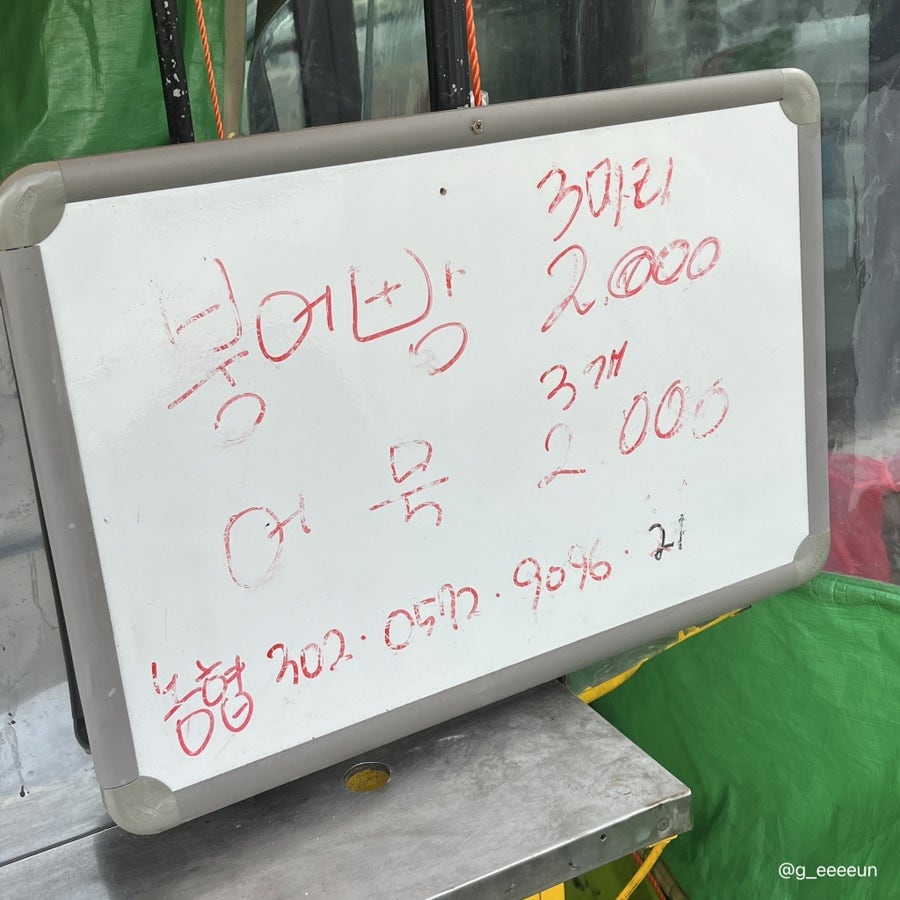 3마리
붕어빵 2.000
3개
어묵 2000
농협 302·0572·9096·21
@g_eeeeun